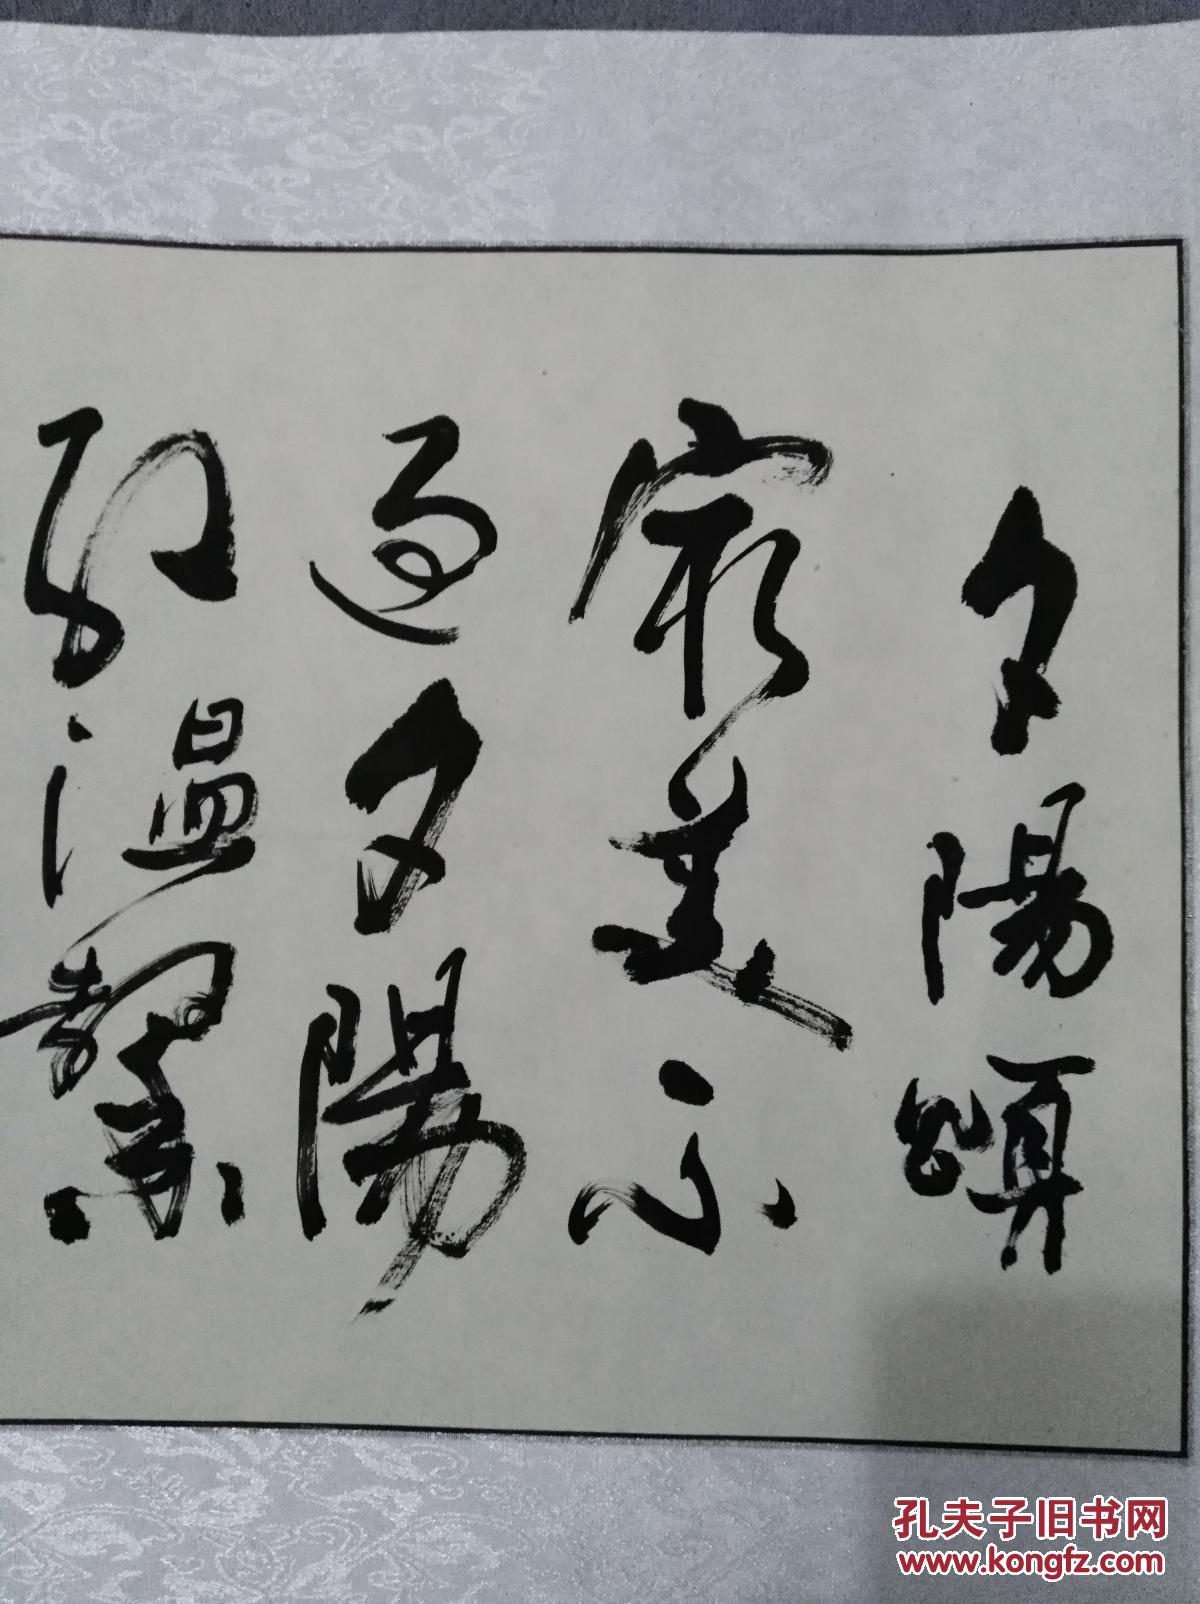 夕陽頌
最美不
過夕陽
紅温馨
孔夫子旧书网
www.kongfz.com